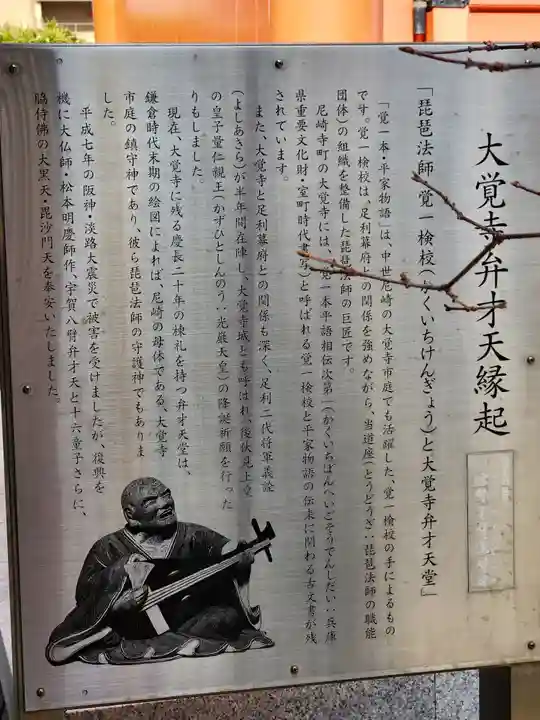 大覚寺弁才天縁起
「琵琶法師・覚一検校(かくいちけんぎょう)と大覚寺弁才天堂」
「覚一本・平家物語」は、中世尼崎の大覚寺市庭でも活躍した、覚一検校の手によるもの
です。覚一検校は、足利幕府との関係を強めながら、当道座(とうどうざ:琵琶法師の職能
団体)の組織を整備した琵琶法師の巨匠です。
尼崎寺町の大覚寺には、「覚一本平語相伝次第(かくいちぼんへいごそうでんしだい:兵庫
県重要文化財・室町時代書写)と呼ばれる覚一検校と平家物語の伝来に関わる古文書が残
されています。
また、大覚寺と足利幕府との関係も深く、足利二代将軍義詮
(よしあきら)が半年間在陣し、大覚寺城とも呼ばれ、後伏見上皇
の皇子量仁親王(かずひとしんのう:光厳天皇)の降誕祈願を行った
りもしました。
現在、大覚寺に残る慶長二十年の棟札を持つ弁才天堂は、
鎌倉時代末期の絵図によれば、尼崎の母体である、大覚寺
市庭の鎮守神であり、彼ら琵琶法師の守護神でもありま
した。
平成七年の阪神・淡路大震災で被害を受けましたが、復興を
機に大仏師・松本明慶師作、宇賀八臂弁才天と十六童子さらに、
脇侍佛の大黒天・毘沙門天を奉安いたしました。